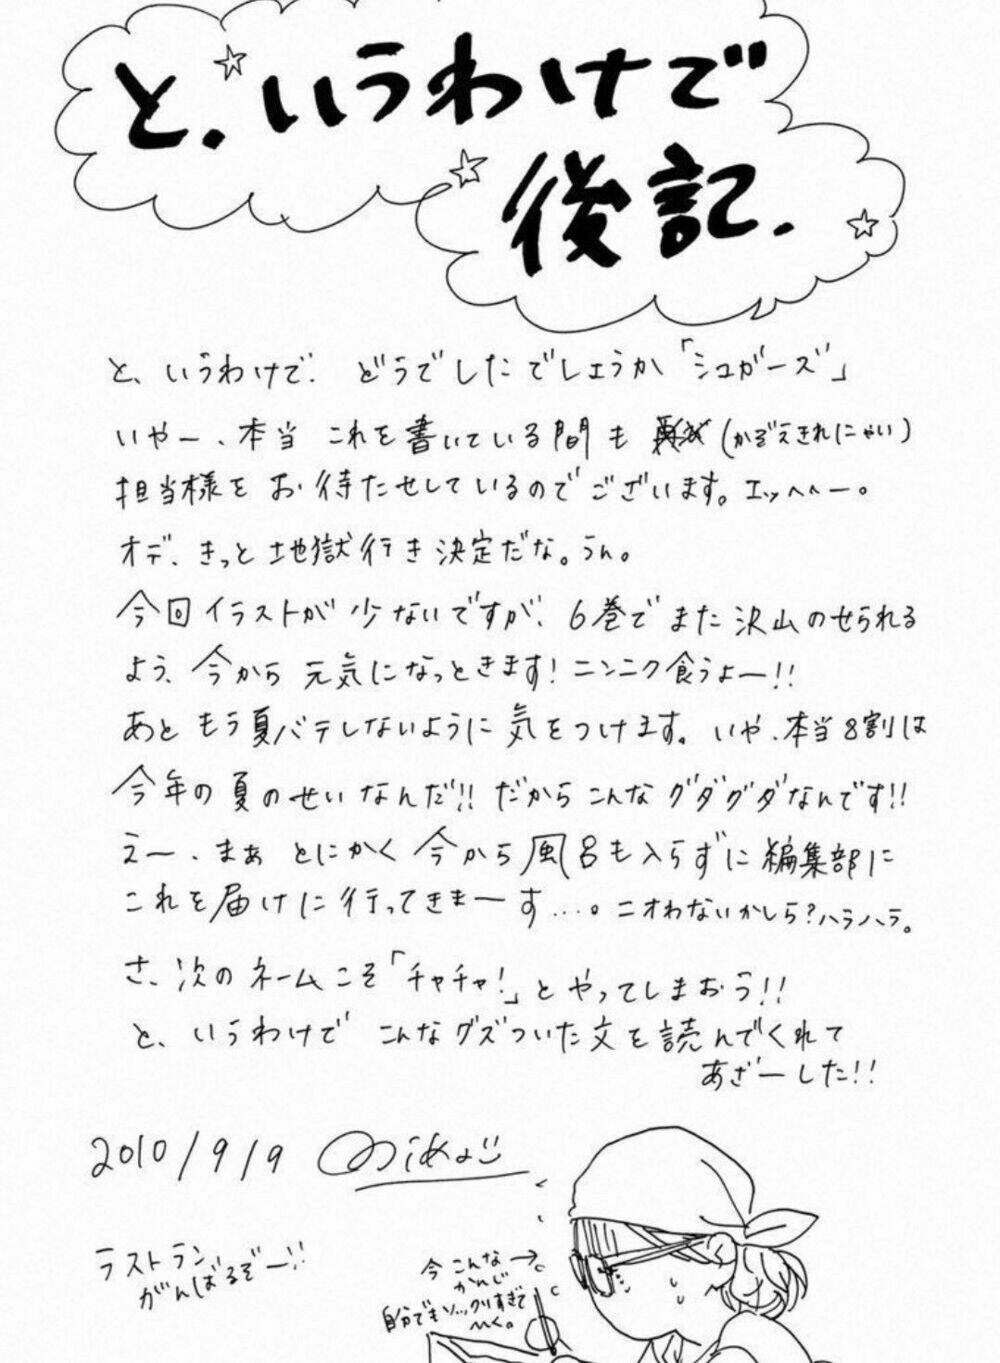 と、いうわけで
後記.
と、いうわけで. どうでしたでしょうか「シュガーズ」
いやー、本当 これを書いている間も (かぞえきれにゃい)
担当様を お待たせしているのでございます。エッヘヘー。
オデ、きっと 地獄行き決定だな。うん。
今回イラストが 少ないですが、6巻でまた沢山のせられる
よう、今から 元気になっときます! ニンニク食うよー!!
あと もう夏バテしないように 気をつけます。いや、本当8割は
今年の夏のせいなんだ!! だからこんなグダグダなんです!!
えー、まぁ とにかく 今から風呂も入らずに 編集部に
これを届けに行ってきまーす…。ニオわないかしら?ハラハラ。
さ、次のネームこそ「チャチャ!」とやってしまおう!!
と、いうわけで こんなグズついた文を読んでくれて
あざーした!!
2010/9/9
ラストラン
がんばるぞー!!
今こんな→
かんじ
自分でもソックリすぎて